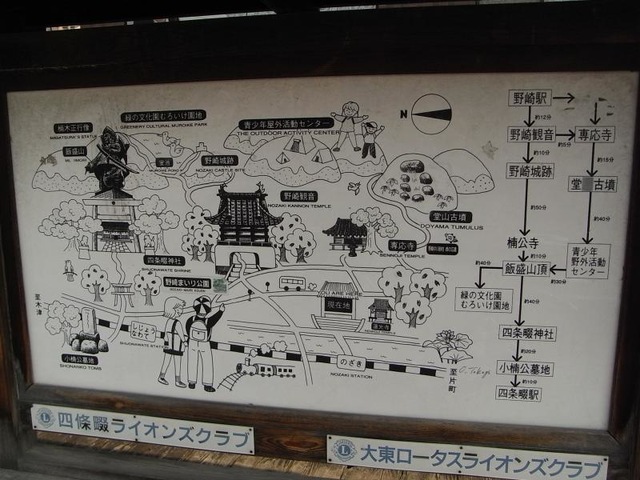 楠木正行像
緑の文化園むろいけ園地
GREENERY CULTURAL MUROIKE PARK
飯盛山
野崎城跡
NOZAKI CASTLE SITE
青少年屋外活動センター
THE OUTDOOR ACTIVITY CENTER
N
野崎観音
NOZAKI KANNON TEMPLE
堂山古墳
DOYAMA TUMULUS
専応寺
SENNOUJI TEMPLE
四条畷神社
SHIJONAWATE SHRINE
野崎まいり公園
YOU ARE HERE
現在地
至木津
しじょうなわて
SHIJONAWATE STATION
小楠公墓地
SHONANKO TOMB
のざき
NOZAKI STATION
至片町
野崎駅
約12分
野崎観音
約5分
専応寺
約10分
約15分
野崎城跡
堂
古墳
約50分
約40分
楠公寺
約10分
青少年
野外活動
センター
約30分
飯盛山頂
約40分
緑の文化園
むろいけ園地
約40分
四条畷神社
約20分
小楠公墓地
約10分
四条畷駅
四條畷ライオンズクラブ
大東ロータスライオンズクラブ